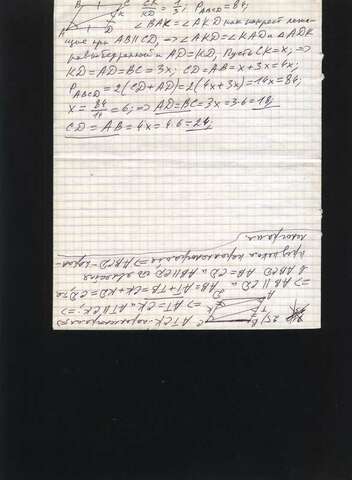 B C CK/KD = 1/3; P_ABCD = 84;
A D K
∠BAK = ∠AKD как накрест лежа-
щие при AB∥CD, => ∠AKD = ∠KAD и △ADK
равнобедренный и AD = KD. Пусть CK = x; =>
KD = AD = BC = 3x; CD = AB = x + 3x = 4x;
P_ABCD = 2(CD + AD) = 2(4x + 3x) = 14x = 84;
x = 84/14 = 6; => AD = BC = 3x = 3·6 = 18;
CD = AB = 4x = 4·6 = 24;
ATCK - параллелограмм
=> AT = CK и AT∥CK; =>
=> AB∥CD и AB = AT + TB = CK + KD = CD, т.е.
в ABCD AB = CD и AB∥CD
=> ABCD - парал-
лелограмм